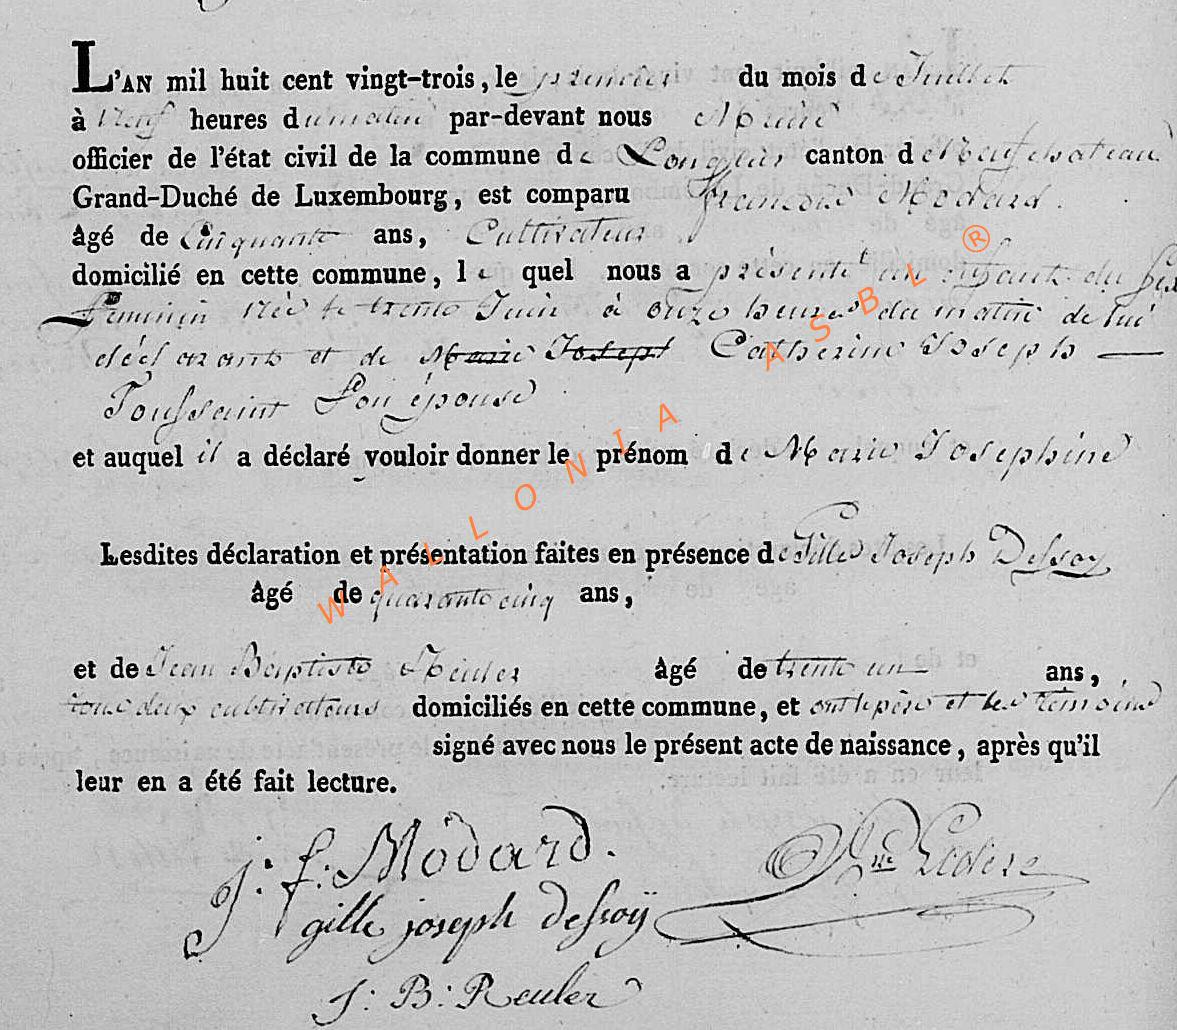 L'AN mil huit cent vingt-trois, le premier du mois de Juillet
à neuf heures du matin par-devant nous Maire
officier de l'état civil de la commune de Longlier canton de Neufchateau
Grand-Duché de Luxembourg, est comparu François Modard.
âgé de Cinquante ans, Cultivateur
domicilié en cette commune, le quel nous a présenté un enfant du sex
Feminin née le trente Juin à onze heures du matin de lui
déclarant et de Marie Joseph Catherine Joseph
Toussaint son épouse
et auquel il a déclaré vouloir donner le prénom de Marie Josephine
Lesdites déclaration et présentation faites en présence de Gille Joseph Dessoy
âgé de quarante cinq ans,
et de Jean Baptiste Reuler âgé de trente un ans,
tous deux cultivateurs domiciliés en cette commune, et ont le père et les témoins
signé avec nous le présent acte de naissance, après qu'il
leur en a été fait lecture.
j: f: Modard.
gille joseph dessoÿ
J: B: Reuler
WALLONIA ASBL ®